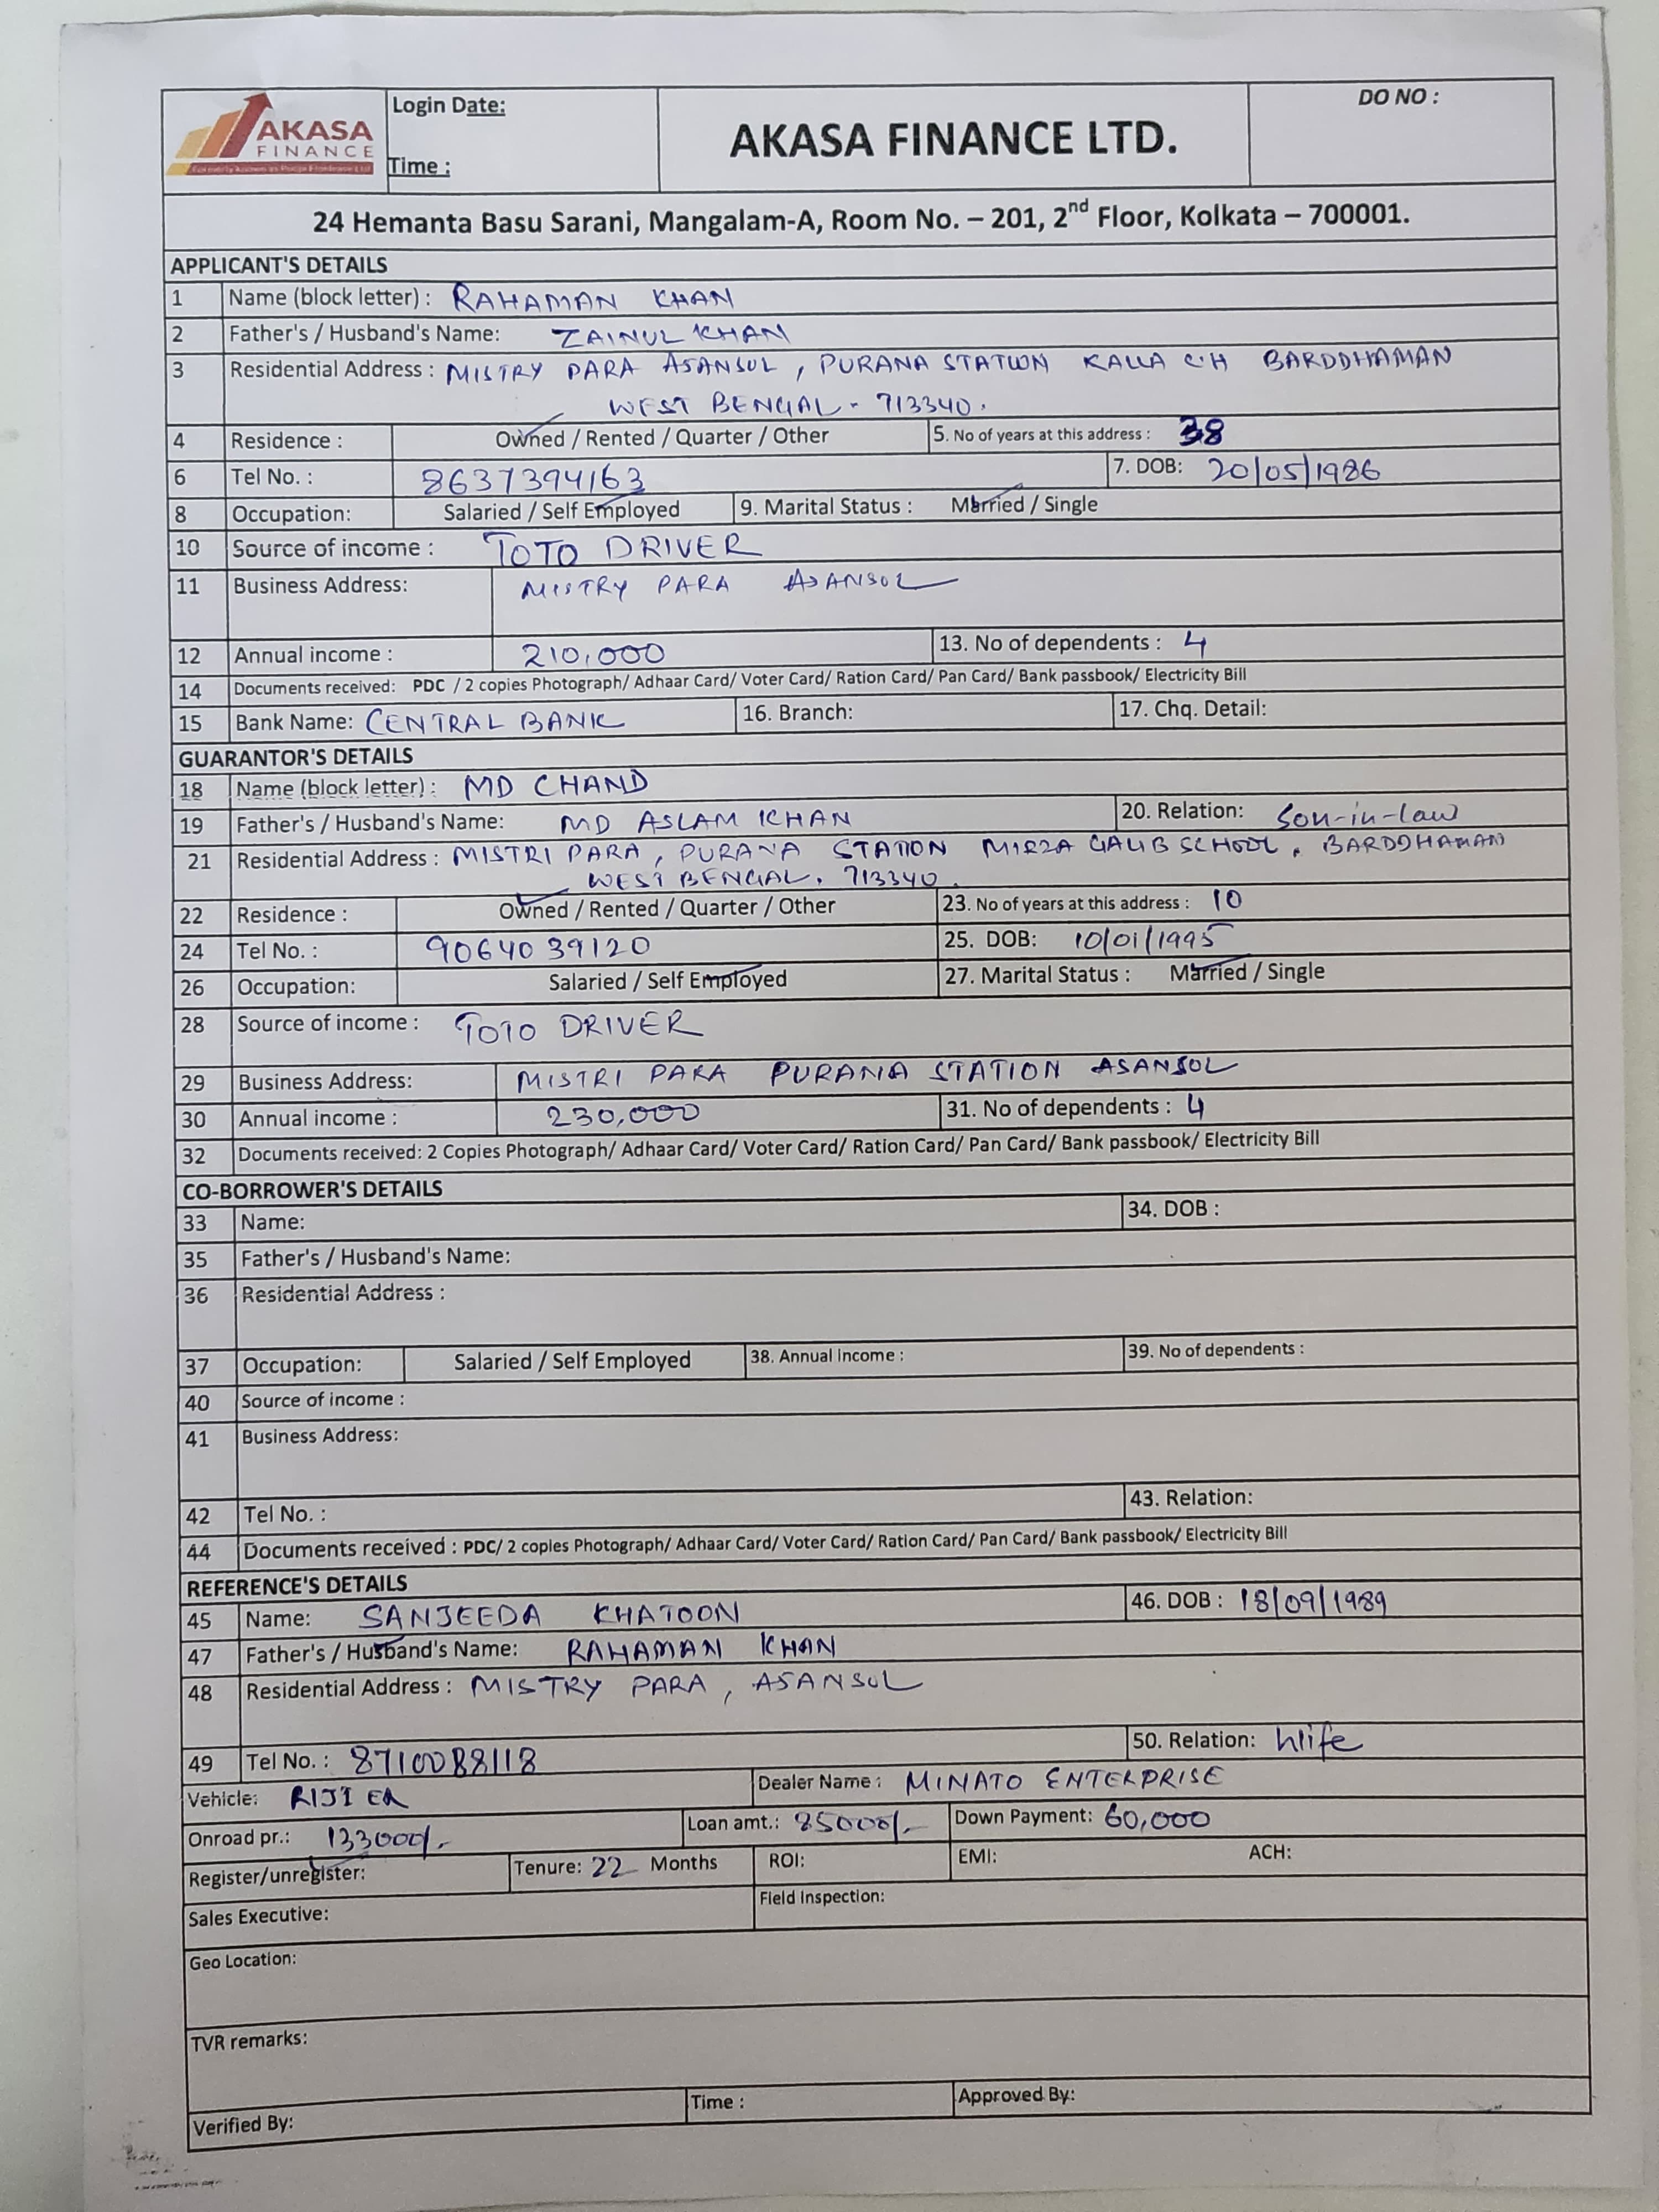 AKASA
FINANCE
Login Date:
Time :
AKASA FINANCE LTD.
DO NO :
24 Hemanta Basu Sarani, Mangalam-A, Room No. – 201, 2nd Floor, Kolkata – 700001.
APPLICANT'S DETAILS
1 Name (block letter) : RAHAMAN KHAN
2 Father's / Husband's Name: ZAINUL KHAN
3 Residential Address : MISTRY PARA ASANSOL , PURANA STATION KALLA C.H BARDDHAMAN
WEST BENGAL - 713340.
4 Residence : Owned / Rented / Quarter / Other 5. No of years at this address : 38
6 Tel No. : 8637394163 7. DOB: 20/05/1986
8 Occupation: Salaried / Self Employed 9. Marital Status : Married / Single
10 Source of income : TOTO DRIVER
11 Business Address: MISTRY PARA ASANSOL
12 Annual income : 210,000 13. No of dependents : 4
14 Documents received: PDC / 2 copies Photograph/ Adhaar Card/ Voter Card/ Ration Card/ Pan Card/ Bank passbook/ Electricity Bill
15 Bank Name: CENTRAL BANK 16. Branch: 17. Chq. Detail:
GUARANTOR'S DETAILS
18 Name (block letter) : MD CHAND
19 Father's / Husband's Name: MD ASLAM KHAN 20. Relation: Son-in-law
21 Residential Address : MISTRI PARA , PURANA STATION MIRZA GALIB SCHOOL , BARDDHAMAN
WEST BENGAL. 713340.
22 Residence : Owned / Rented / Quarter / Other 23. No of years at this address : 10
24 Tel No. : 9064039120 25. DOB: 10/01/1995
26 Occupation: Salaried / Self Employed 27. Marital Status : Married / Single
28 Source of income : TOTO DRIVER
29 Business Address: MISTRI PARA PURANA STATION ASANSOL
30 Annual income : 230,000 31. No of dependents : 4
32 Documents received: 2 Copies Photograph/ Adhaar Card/ Voter Card/ Ration Card/ Pan Card/ Bank passbook/ Electricity Bill
CO-BORROWER'S DETAILS
33 Name: 34. DOB :
35 Father's / Husband's Name:
36 Residential Address :
37 Occupation: Salaried / Self Employed 38. Annual Income : 39. No of dependents :
40 Source of income :
41 Business Address:
42 Tel No. : 43. Relation:
44 Documents received : PDC/ 2 copies Photograph/ Adhaar Card/ Voter Card/ Ration Card/ Pan Card/ Bank passbook/ Electricity Bill
REFERENCE'S DETAILS
45 Name: SANJEEDA KHATOON 46. DOB : 18/09/1989
47 Father's / Husband's Name: RAHAMAN KHAN
48 Residential Address : MISTRY PARA , ASANSOL
49 Tel No. : 8710088118 50. Relation: Wife
Vehicle: Dealer Name : MINATO ENTERPRISE
Onroad pr.: 133000/- Loan amt.: 85000/- Down Payment: 60,000
Register/unregister: Tenure: 22 Months ROI: EMI: ACH:
Sales Executive: Field Inspection:
Geo Location:
TVR remarks:
Verified By: Time : Approved By: